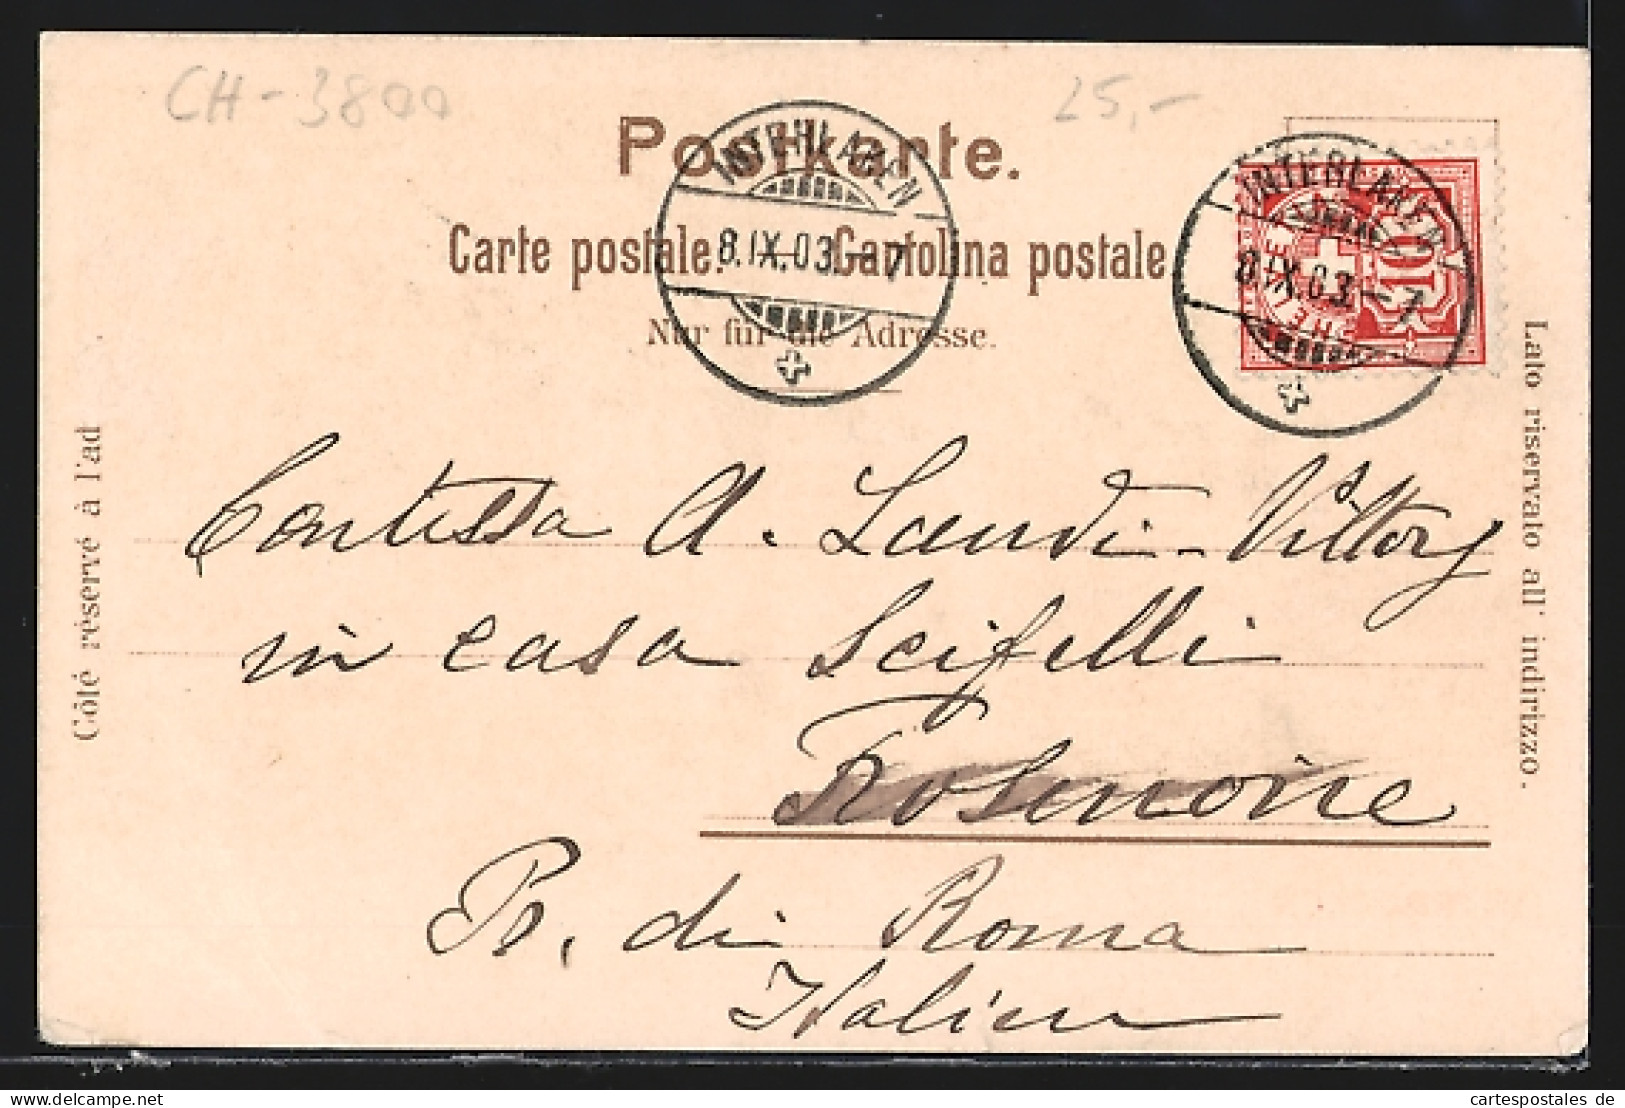 CH-3800
25,-
Postkarte.
INTERLAKEN
8.IX.03.-7
INTERLAKEN
8.IX.03.-7
10
Carte postale. — Cartolina postale
Nur für die Adresse.
Côté réservé à l'ad
Lato riservato all' indirizzo.
Contessa A. Landi-Vittorj
in casa Scifelli
Frosinone
Pr. di Roma
Italien
cartespostales de
www.delcampe.net